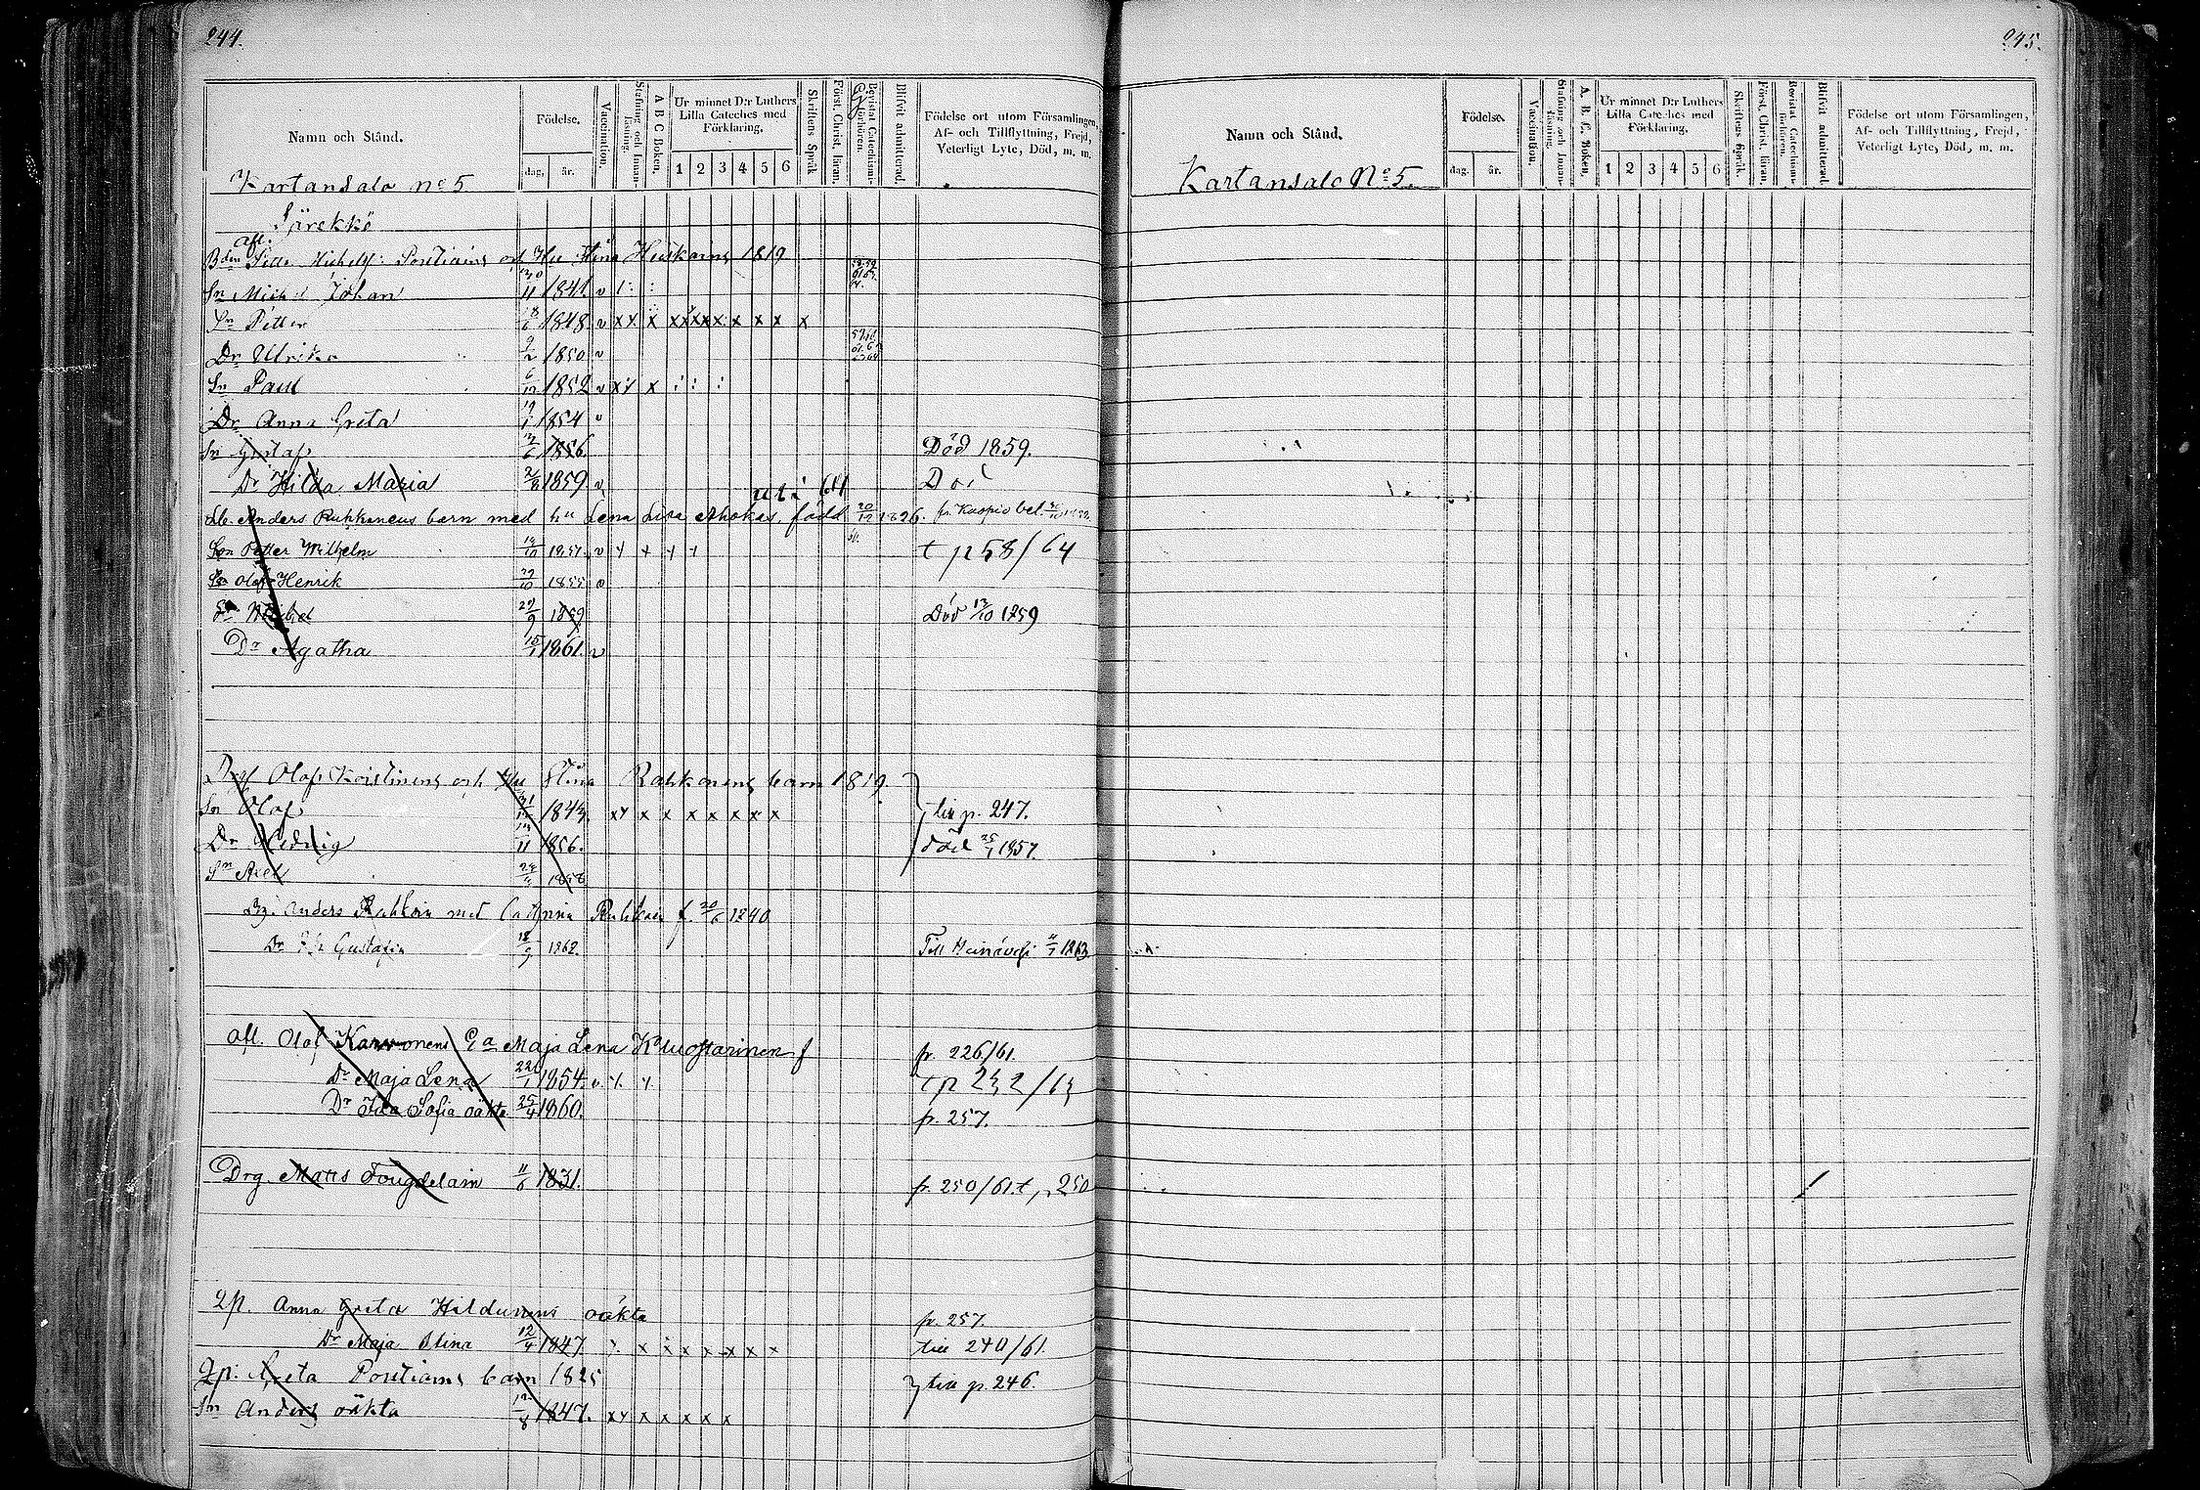 244.
Namn och Stånd.
Födelse.
dag, år.
Vaccination.
Stafning och Innanläsning.
A B C Boken.
Ur minnet D:r Luthers Lilla Cateches med Förklaring.
1 2 3 4 5 6
Skriftens Språk
Först. Christ. läran.
Bevistat Catechismi-förhören.
Blifvit admitterad.
Födelse ort utom Församlingen, Af- och Tillflyttning, Frejd, Veterligt Lyte, Död, m. m.
Kartansalo No 5
Särekkö
afl.
Bden Petter Michelss: Poutiains och Hu Stina Heiskains 1819
Sn Michel Johan 30/11 1841. v
Sn Petter 18/6 1848. v x x x x x x x x x x x x
Dr Ulrika 9/2 1850 v
Sn Paul 6/12 1852 v x x x : : :
Dr Anna Greta 19/1 1854 v
Sn Gustaf 1856 Död 1859.
Dr Hilda Maria 1859 v Död
ut i 64
Lb. Anders Ruhkanens barn med hu Lena Lisa Ahokas, född 20/12 1826. fr. Kuopio bet.
Son Petter Wilhelm v x x x x t p 58/64
Sn Olof Henrik 29/10 1855 v
Sn Michel 29/9 1859 Död 13/10 1859
Dr Agatha 15/1 1861. v
Drgs Olof Koistinens och Hu Stina Rahkonens barn 1819.
Sn Olof 1843. x x x x x x x x x till p. 247.
Dr Hedvig 11 1856. död 25/1 1857.
Sn Axel 1858
Anders Ruhkain med Anna Ruhkain f. 20/6 1840
Dr Gustafva 18/9 1862. Till Heinävesi 4/7 1863
afl. Olof Karvonens Ea Maja Lena Kaluostarinen f fr. 226/61.
Dr Maja Lena 22/1 1854. v x x t p 232/63
Dr Ida Sofia oäkta 25/4 1860. fr. 257.
Drg. Matts Tougdelain 11/6 1831. fr. 250/61. t p 250
Qp. Anna Greta Hildunens oäkta fr. 257.
Dr Maja Stina 12/4 1847. x x x x x x x x till 240/61.
Qp: Greta Poutiains barn 1825 till p. 246.
Sn Anders oäkta 12/8 1847. x x x x x x x
245.
Namn och Stånd.
Födelse.
dag. år.
Vaccination.
Stafning och Innanläsning.
A. B. C. Boken.
Ur minnet D:r Luthers Lilla Cateches med Förklaring.
1 2 3 4 5 6
Skriftens Språk.
Först. Christ. läran.
Bevistat Catechismi-förhören.
Blifvit admitterad.
Födelse ort utom Församlingen, Af- och Tillflyttning, Frejd, Veterligt Lyte, Död, m. m.
Kartansalo No 5.